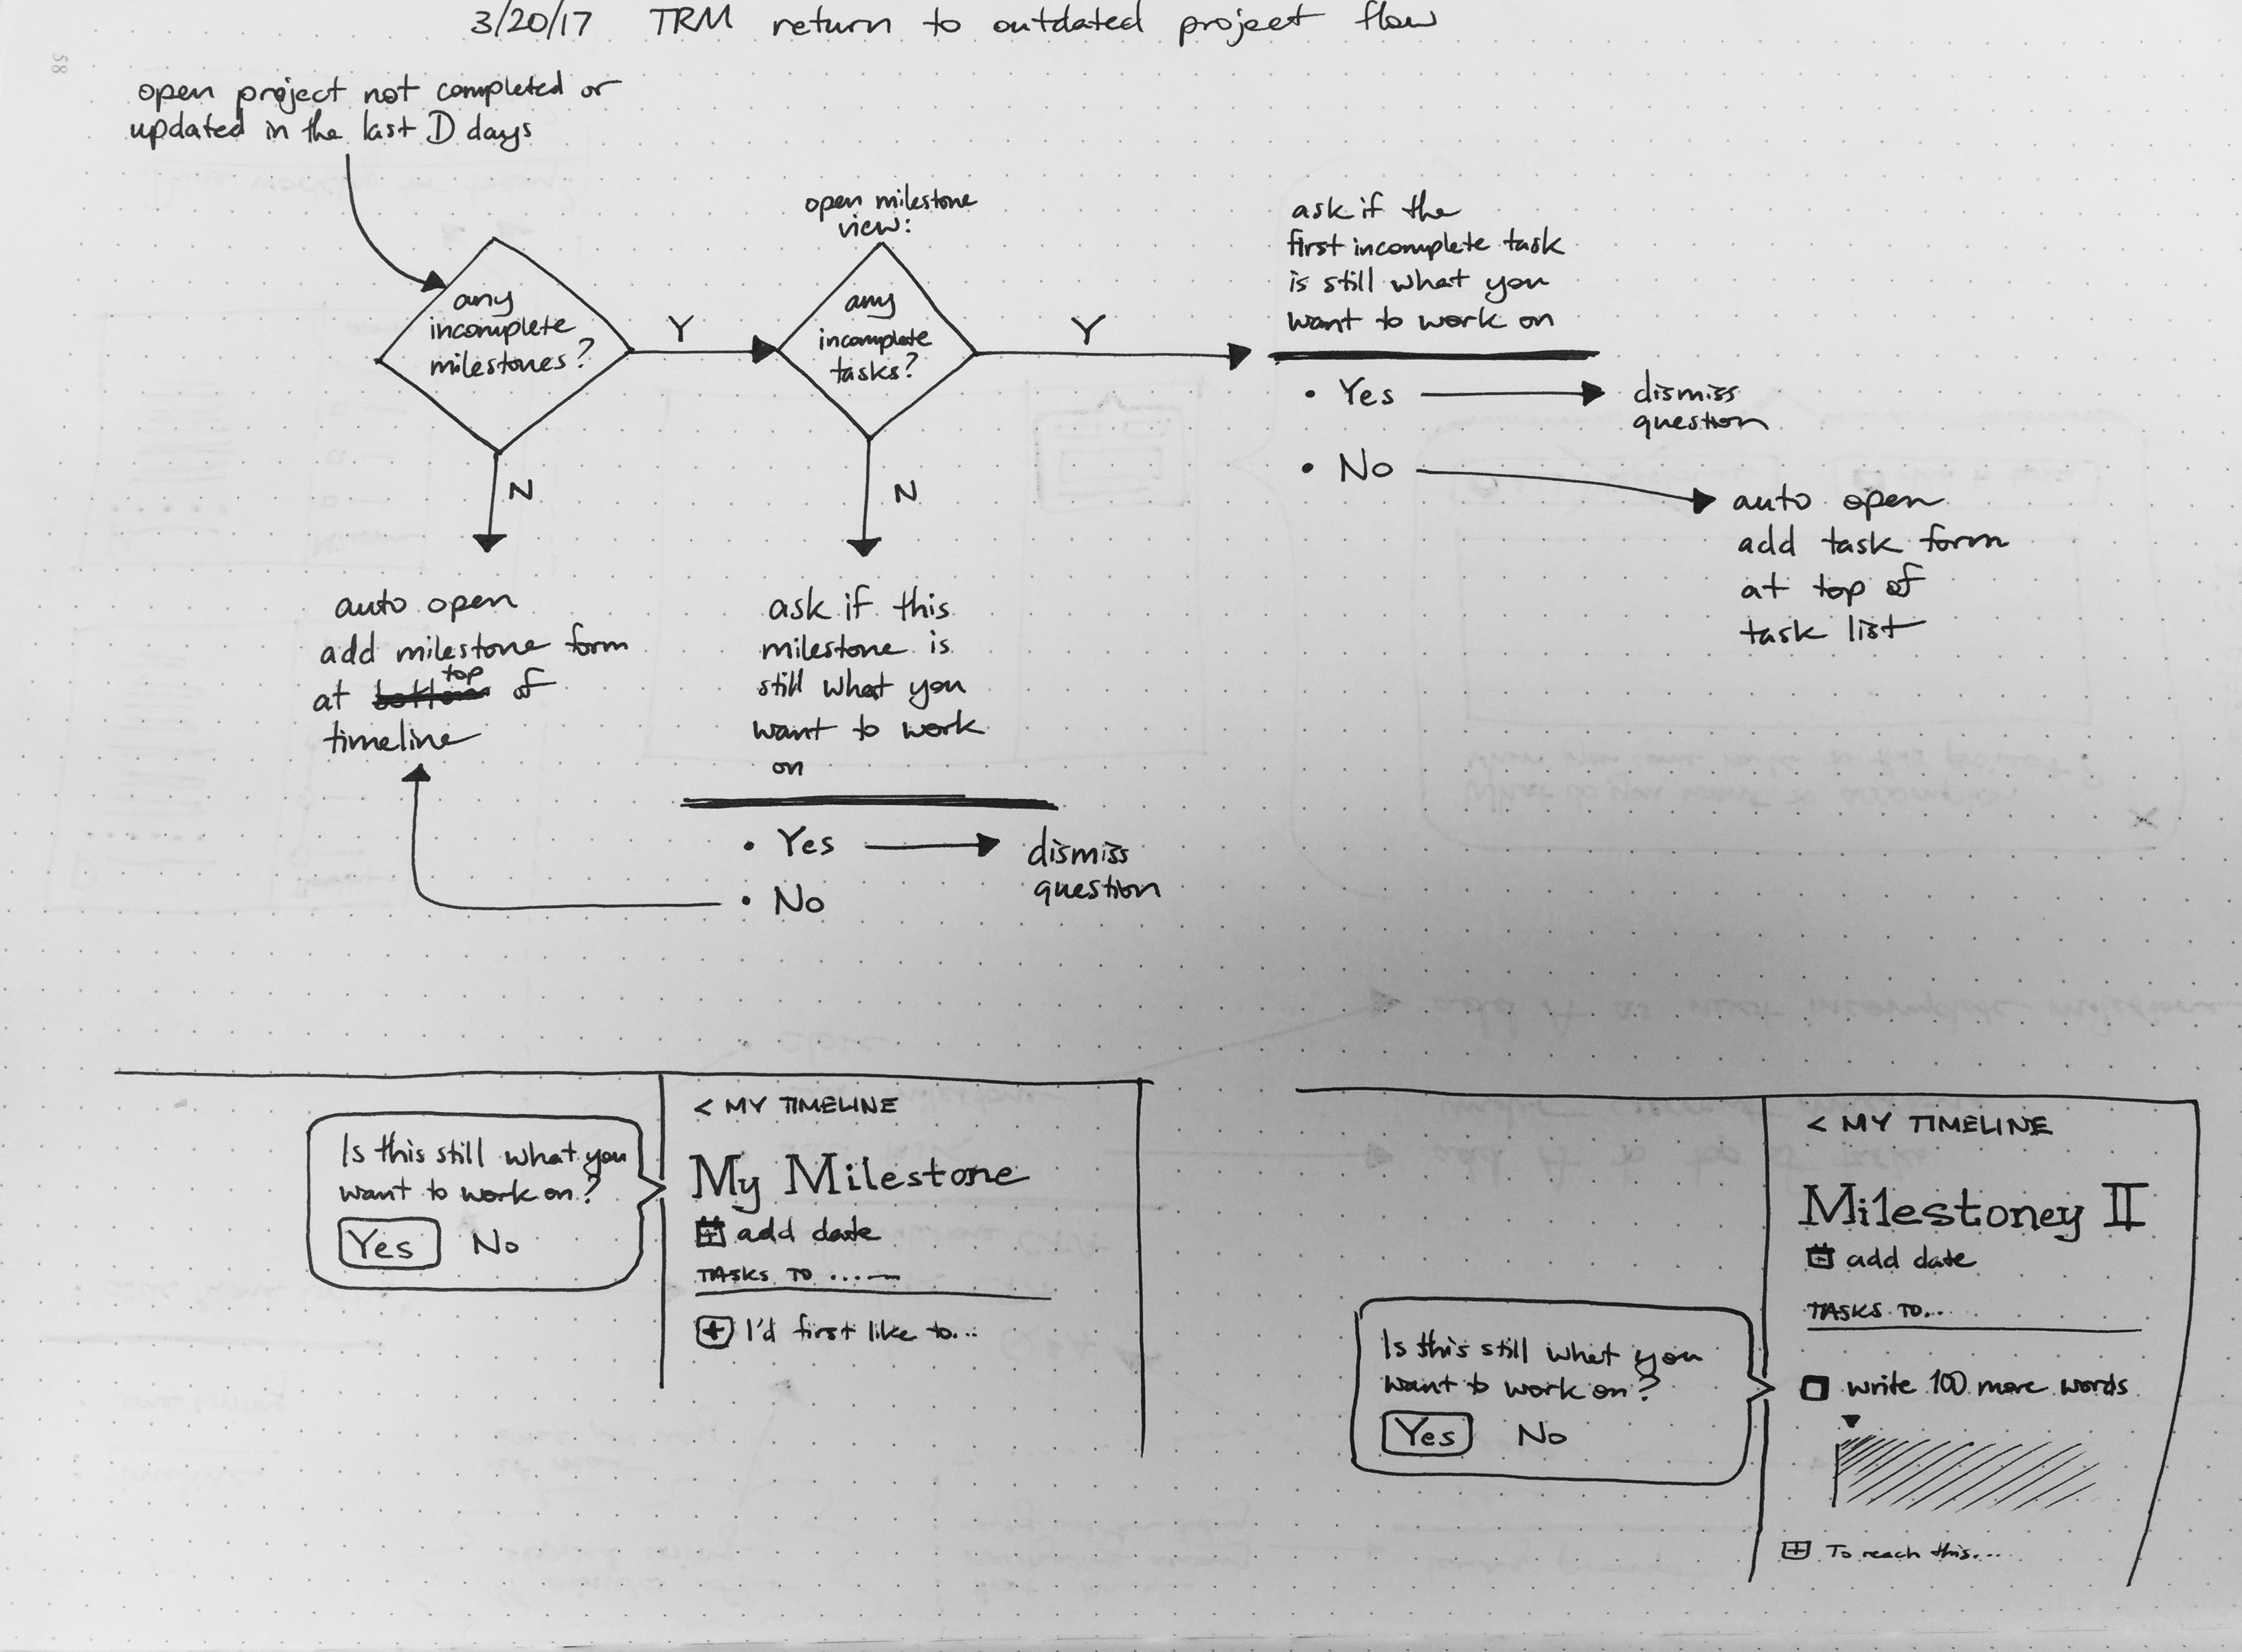 3/20/17 TRM return to outdated project flow
58
open project not completed or
updated in the last D days
any
incomplete
milestones?
Y
N
open milestone
view:
any
incomplete
tasks?
Y
N
ask if the
first incomplete task
is still what you
want to work on
• Yes
dismiss
question
• No
auto open
add task form
at top of
task list
auto open
add milestone form
at bottom top of
timeline
ask if this
milestone is
still what you
want to work
on
• Yes
dismiss
question
• No
Is this still what you
want to work on?
Yes No
< MY TIMELINE
My Milestone
add date
TASKS TO
I'd first like to...
Is this still what you
want to work on?
Yes No
< MY TIMELINE
Milestoney II
add date
TASKS TO...
write 100 more words
To reach this...